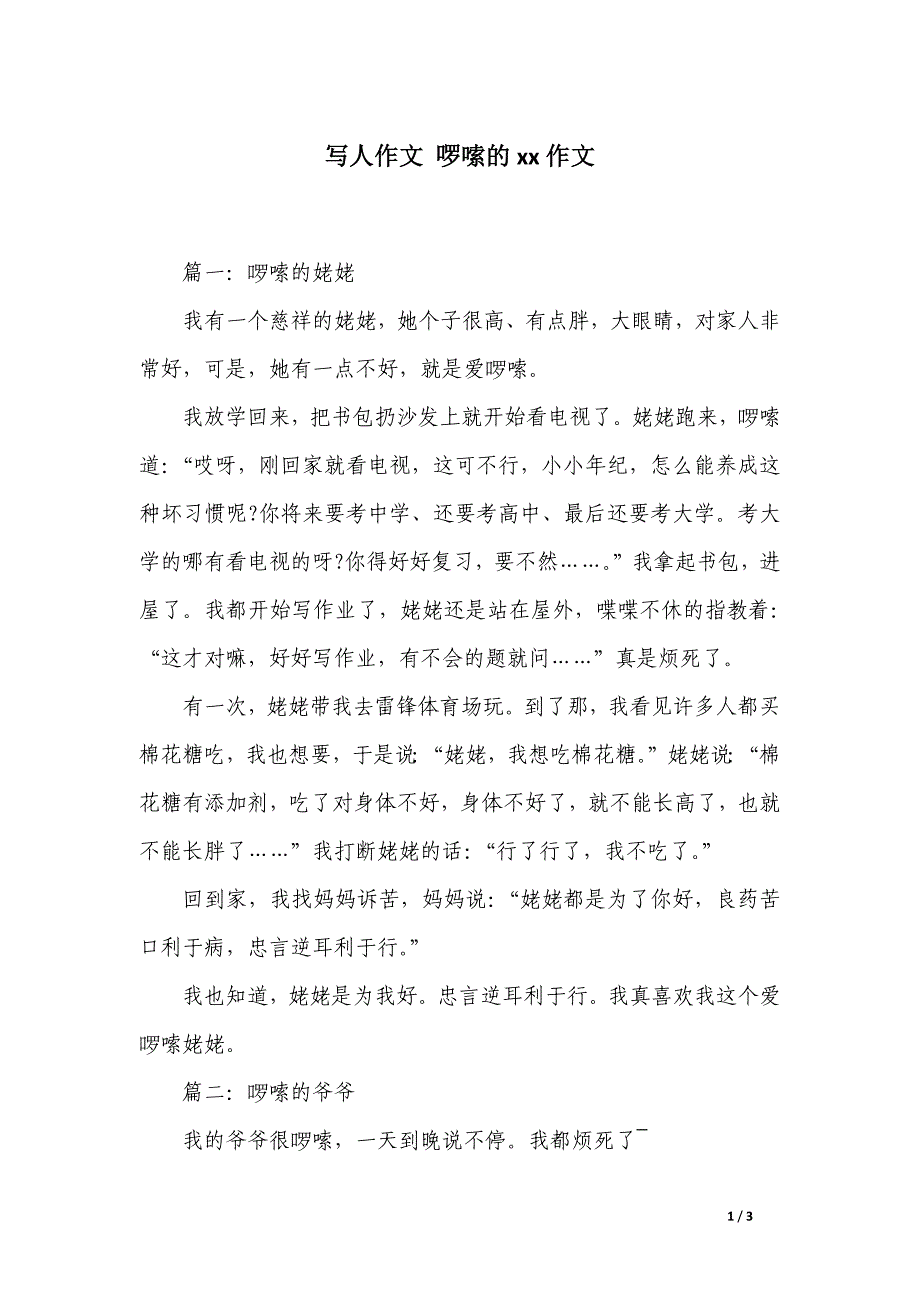 写人作文 啰嗦的xx作文
篇一：啰嗦的姥姥
我有一个慈祥的姥姥，她个子很高、有点胖，大眼睛，对家人非
常好，可是，她有一点不好，就是爱啰嗦。
我放学回来，把书包扔沙发上就开始看电视了。姥姥跑来，啰嗦
道：“哎呀，刚回家就看电视，这可不行，小小年纪，怎么能养成这
种坏习惯呢?你将来要考中学、还要考高中、最后还要考大学。考大
学的哪有看电视的呀?你得好好复习，要不然……。”我拿起书包，进
屋了。我都开始写作业了，姥姥还是站在屋外，喋喋不休的指教着：
“这才对嘛，好好写作业，有不会的题就问……”真是烦死了。
有一次，姥姥带我去雷锋体育场玩。到了那，我看见许多人都买
棉花糖吃，我也想要，于是说：“姥姥，我想吃棉花糖。”姥姥说：“棉
花糖有添加剂，吃了对身体不好，身体不好了，就不能长高了，也就
不能长胖了……”我打断姥姥的话：“行了行了，我不吃了。”
回到家，我找妈妈诉苦，妈妈说：“姥姥都是为了你好，良药苦
口利于病，忠言逆耳利于行。”
我也知道，姥姥是为我好。忠言逆耳利于行。我真喜欢我这个爱
啰嗦姥姥。
篇二：啰嗦的爷爷
我的爷爷很啰嗦，一天到晚说不停。我都烦死了¯
1 / 3